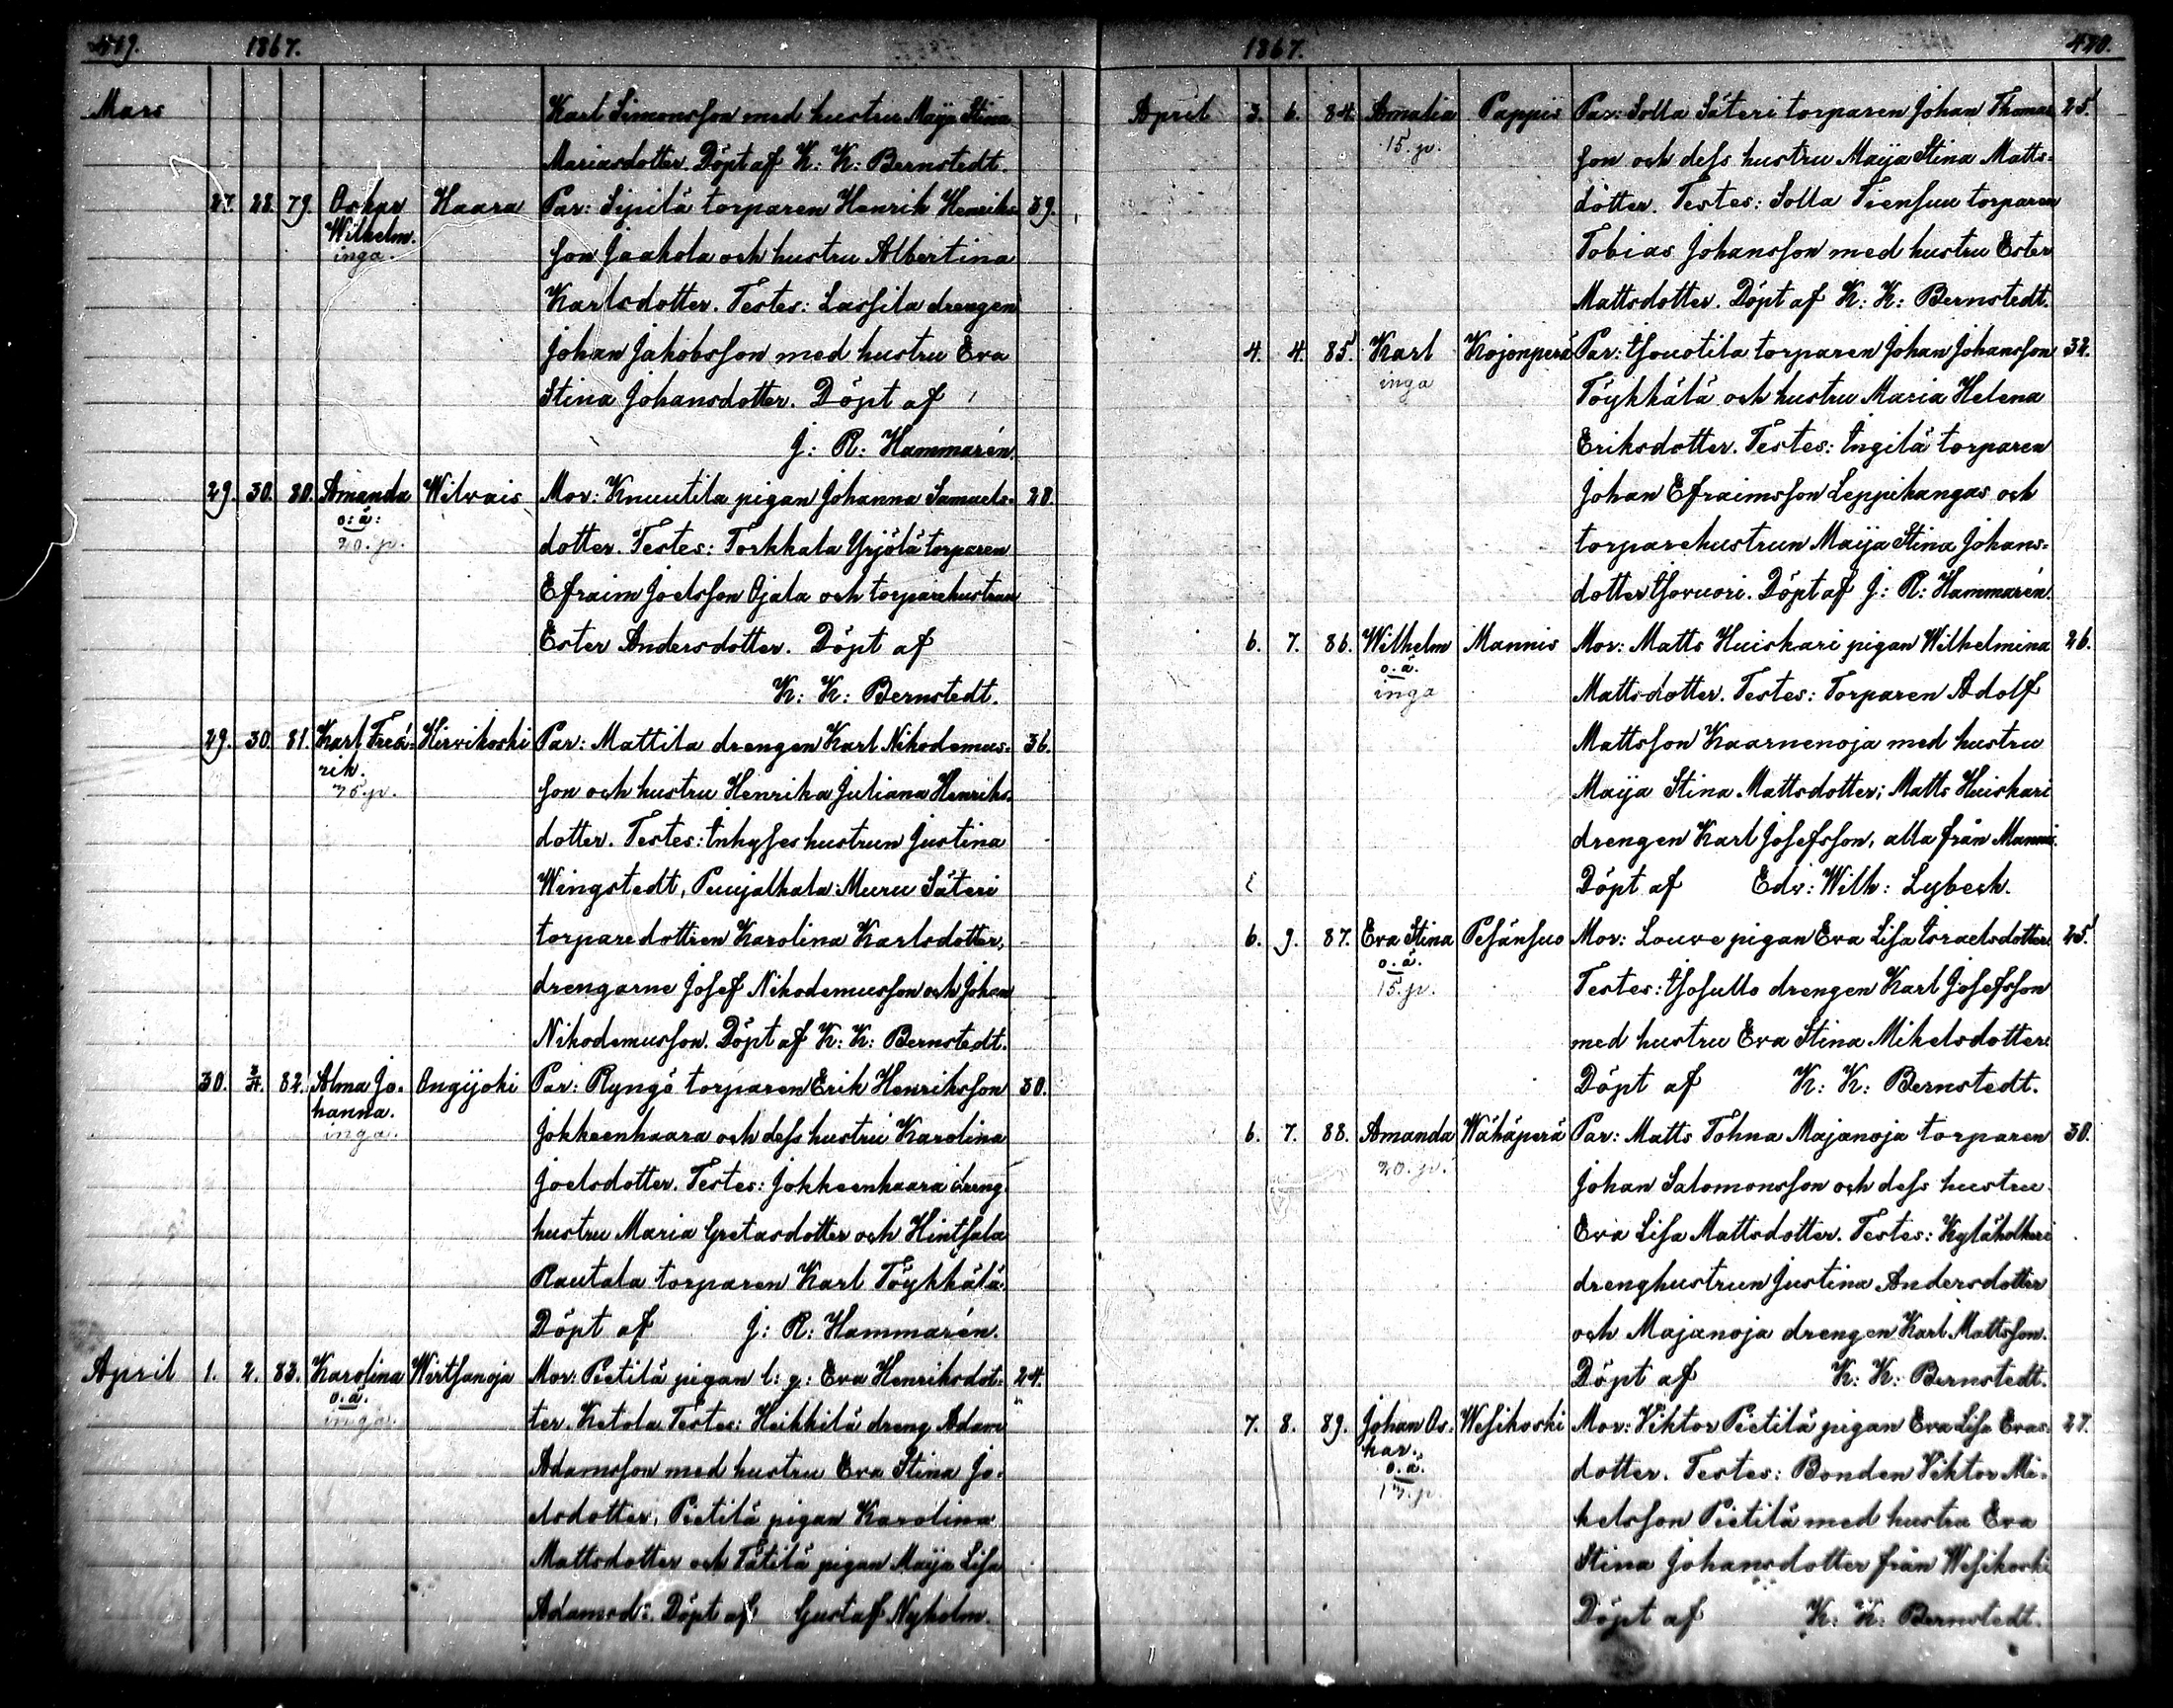 419. 1867.
Mars Karl Simonsson med hustru Maja Stina
Mariasdotter. Döpt af K: K: Bernstedt.
27. 28. 79. Oskar Haara Par: Sipilä torparen Henrik Henriks- 39.
Wilhelm. son Jaakola och hustru Albertina
inga.
Karlsdotter. Testes: Lassila drengen
Johan Jakobsson med hustru Eva
Stina Johansdotter. Döpt af
J: R: Hammarén.
29. 30. 80. Amanda Wilvais Mor: Knuutila pigan Johanna Samuels- 28.
o: ä:
20. p. dotter. Testes: Torkkala Yrjölä torparen
Efraim Joelsson Ojala och torparehustrun
Ester Andersdotter. Döpt af
K: K: Bernstedt.
29. 30. 81. Karl Fred- Hirvikoski Par: Mattila drengen Karl Nikodemus- 36.
rik.
75. p. son och hustru Henrika Juliana Henriks-
dotter. Testes: Inhyses hustrun Justina
Wingstedt, Puujalkala: Muru Säteri
torparedottren Karolina Karlsdotter,
drengarne Josef Nikodemusson och Johan
Nikodemusson. Döpt af K: K: Bernstedt.
30. 3/4. 82. Alma Jo- Ongijoki Par: Ryngö torparen Erik Henriksson 30.
hanna.
inga. Jokkeenhaara och dess hustru Karolina
Joelsdotter. Testes: Jokkeenhaara dreng
hustru Maria Gretasdotter och Hintsala
Rautala torparen Karl Töykkälä.
Döpt af J: R: Hammarén.
April 1. 2. 83. Karolina Wirtsanoja Mor: Pietilä pigan l: g: Eva Henriksdot- 24.
o. ä.
inga. ter Ketola Testes: Heikkilä dreng Adam
Adamsson med hustru Eva Stina Jo-
elsdotter, Pietilä pigan Karolina
Mattsdotter och Tätilä pigan Maija Lisa
Adamsd: Döpt af Gustaf Nyholm.
1867. 420.
April 3. 6. 84. Amalia Pappis Par: Solla Säteri torparen Johan Thomas- 25.
15. p. son och dess hustru Maija Stina Matts-
dotter. Testes: Solla Tiensuu torparen
Tobias Johansson med hustru Ester
Mattsdotter. Döpt af K: K: Bernstedt.
4. 4. 85. Karl Kojonperä Par: Isouotila torparen Johan Johansson 32.
inga Töykkälä och hustru Maria Helena
Eriksdotter. Testes: Ingilä torparen
Johan Efraimsson Leppihangas och
torparehustrun Maija Stina Johans-
dotter Isovuori. Döpt af J: R: Hammarén.
6. 7. 86. Wilhelm Mannis Mor: Matts Huiskari pigan Wilhelmina 26.
o. ä.
inga Mattsdotter. Testes: Torparen Adolf
Mattsson Kaarnenoja med hustru
Maija Stina Mattsdotter; Matts Huiskari
drengen Karl Josefsson, alla från Mannis.
Döpt af Edv: Wilh: Lybeck.
6. 9. 87. Eva Stina Pesänsuo Mor: Louve pigan Eva Lisa Israelsdotter. 25.
o. ä.
15. p. Testes: Isosullo drengen Karl Josefsson
med hustru Eva Stina Mikelsdotter.
Döpt af K: K: Bernstedt.
6. 7. 88. Amanda Wähäperä Par: Matts Tohna Majanoja torparen 30.
20. p. Johan Salomonsson och dess hustru
Eva Lisa Mattsdotter. Testes: Kyläholkeri
drenghustrun Justina Andersdotter
och Majanoja drengen Karl Mattsson.
Döpt af K: K: Bernstedt.
7. 8. 89. Johan Os- Wesikoski Mor: Viktor Pietilä pigan Eva Lisa Evas- 27.
kar.
o. ä. dotter. Testes: Bonden Viktor Mi-
kelsson Pietilä med hustru Eva
Stina Johansdotter från Wesikoski
Döpt af K: K: Bernstedt.